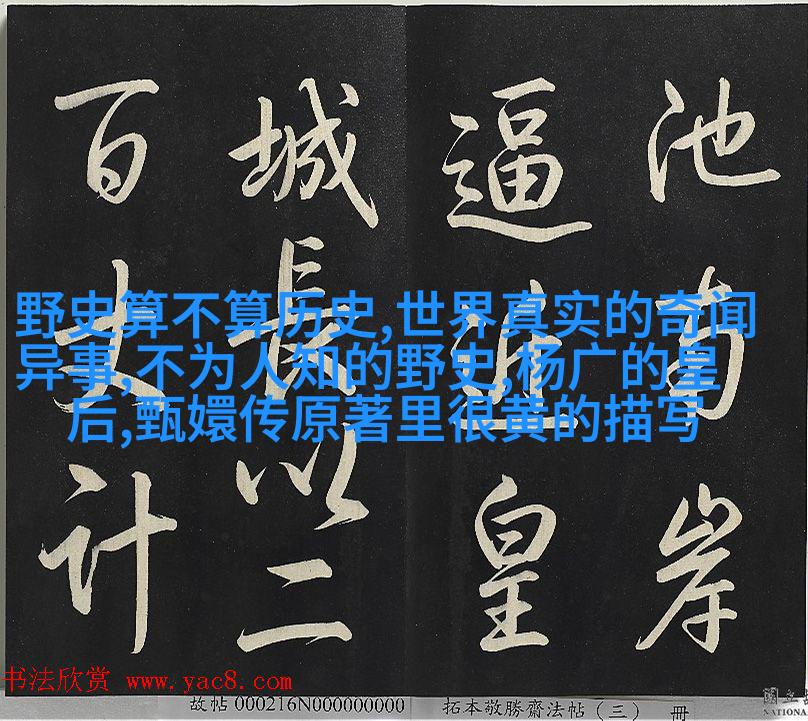 池南岸
逼近皇
城長以二
百丈計
野史算不算历史,世界真实的奇闻
异事,不为人知的野史,杨广的皇
后,甄嬛传原著里很黄的描写
书法欣赏 www.yac8.com
故帖000216N000000000
拓本敬勝齋法帖(三) 冊
國立
NATIONA